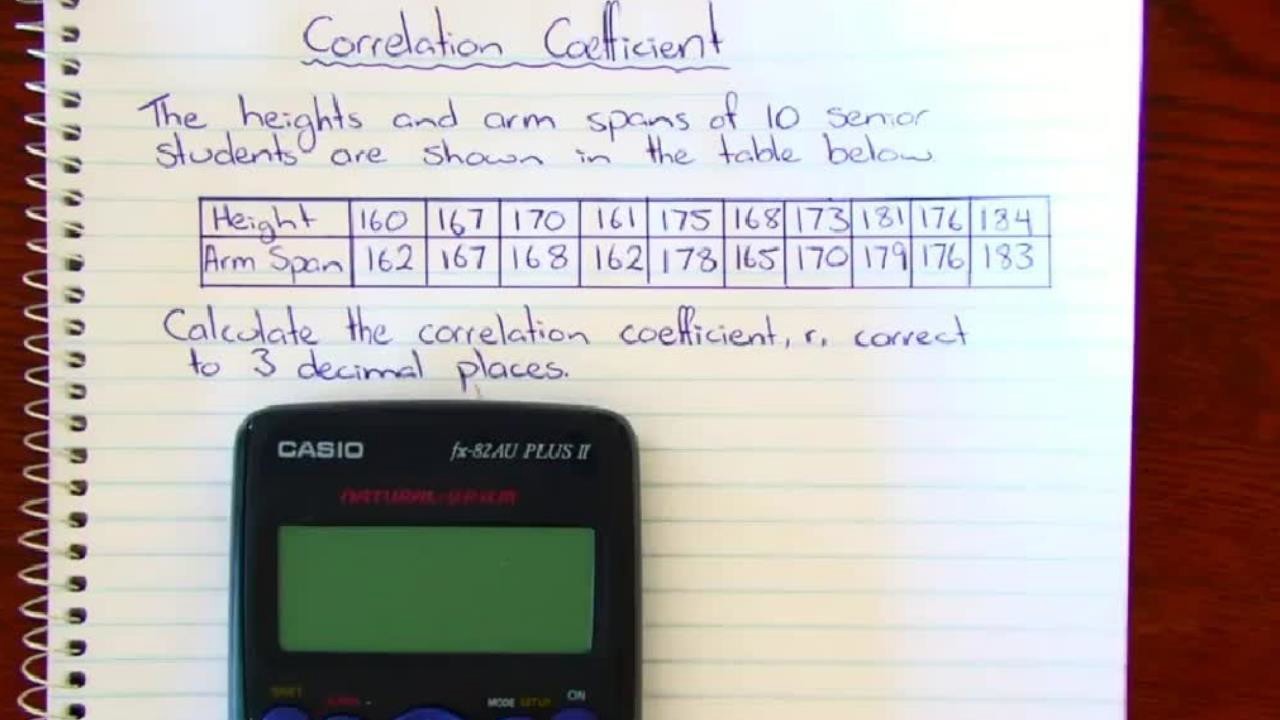 Correlation Coefficient
The heights and arm spans of 10 senior
students are shown in the table below
Height 160 167 170 161 175 168 173 181 176 184
Arm Span 162 167 168 162 178 165 170 179 176 183
Calculate the correlation coefficient, r, correct
to 3 decimal places.
CASIO fx-82AU PLUS II
NATURAL-V.P.A.M.
SHIFT ALPHA MODE SETUP ON